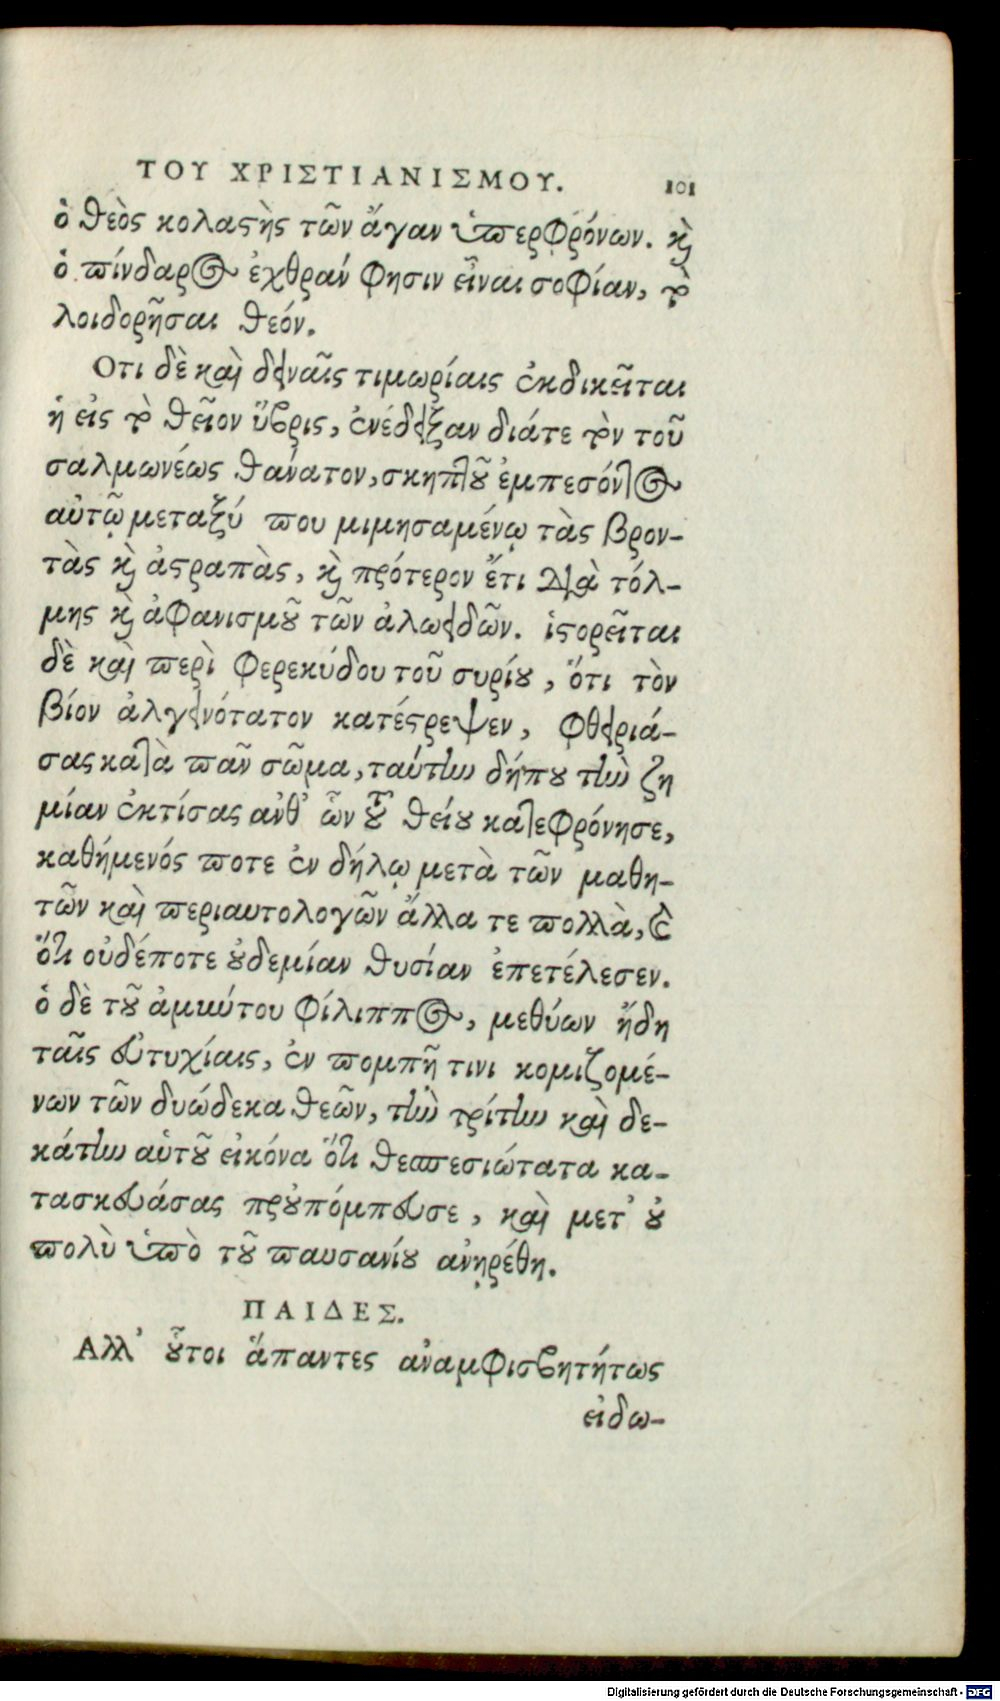 ΤΟΥ ΧΡΙΣΤΙΑΝΙΣΜΟΥ. 101
ὁ θεὸς κολαϛὴς τῶν ἄγαν ὑπερφρόνων. ϗ̀
ὁ πίνδαρος ἐχθράν φησιν εἶναι σοφίαν, τὸ
λοιδορῆσαι θεόν.
Οτι δὲ καὶ δειναῖς τιμωρίαις ἐκδικεῖται
ἡ εἰς τὸ θεῖον ὕβρις, ἐνέδειξαν διάτε τὸν τοῦ
σαλμωνέως θάνατον, σκηπτοῦ ἐμπεσόντος
αὐτῷ μεταξύ που μιμησαμένῳ τὰς βρον-
τὰς ϗ̀ ἀϛραπὰς, ϗ̀ πρότερον ἔτι διὰ τόλ-
μης ϗ̀ ἀφανισμοῦ τῶν ἀλωειδῶν. ἱϛορεῖται
δὲ καὶ περὶ φερεκύδου τοῦ συρίου, ὅτι τὸν
βίον ἀλγεινότατον κατέϛρεψεν, φθειριά-
σας κατὰ πᾶν σῶμα, ταύτην δήπου τὴν ζη
μίαν ἐκτίσας ἀνθ' ὧν τοῦ θείου κατεφρόνησε,
καθήμενός ποτε ἐν δήλῳ μετὰ τῶν μαθη-
τῶν καὶ περιαυτολογῶν ἄλλα τε πολλὰ, καὶ
ὅτι οὐδέποτε οὐδεμίαν θυσίαν ἐπετέλεσεν.
ὁ δὲ τοῦ ἀμύντου φίλιππος, μεθύων ἤδη
ταῖς εὐτυχίαις, ἐν πομπῇ τινι κομιζομέ-
νων τῶν δυώδεκα θεῶν, τὴν τρίτην καὶ δε-
κάτην αὑτοῦ εἰκόνα ὅτι θεσπεσιώτατα κα-
τασκευάσας προὐπόμπευσε, καὶ μετ' οὐ
πολὺ ὑπὸ τοῦ παυσανίου ἀνῃρέθη.
ΠΑΙΔΕΣ.
Αλλ' οὗτοι ἅπαντες ἀναμφισβητήτως
εἰδω-
Digitalisierung gefördert durch die Deutsche Forschungsgemeinschaft - DFG